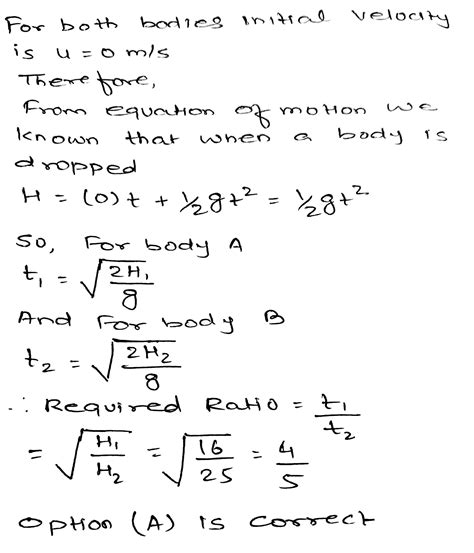 For both bodies initial velocity
is u = 0 m/s
Therefore,
From equation of motion we
known that when a body is
dropped
H = (0)t + 1/2gt² = 1/2gt²
So, For body A
t₁ = √(2H₁/g)
And For body B
t₂ = √(2H₂/g)
∴ Required Ratio = t₁/t₂
= √(H₁/H₂) = √(16/25) = 4/5
Option (A) is correct